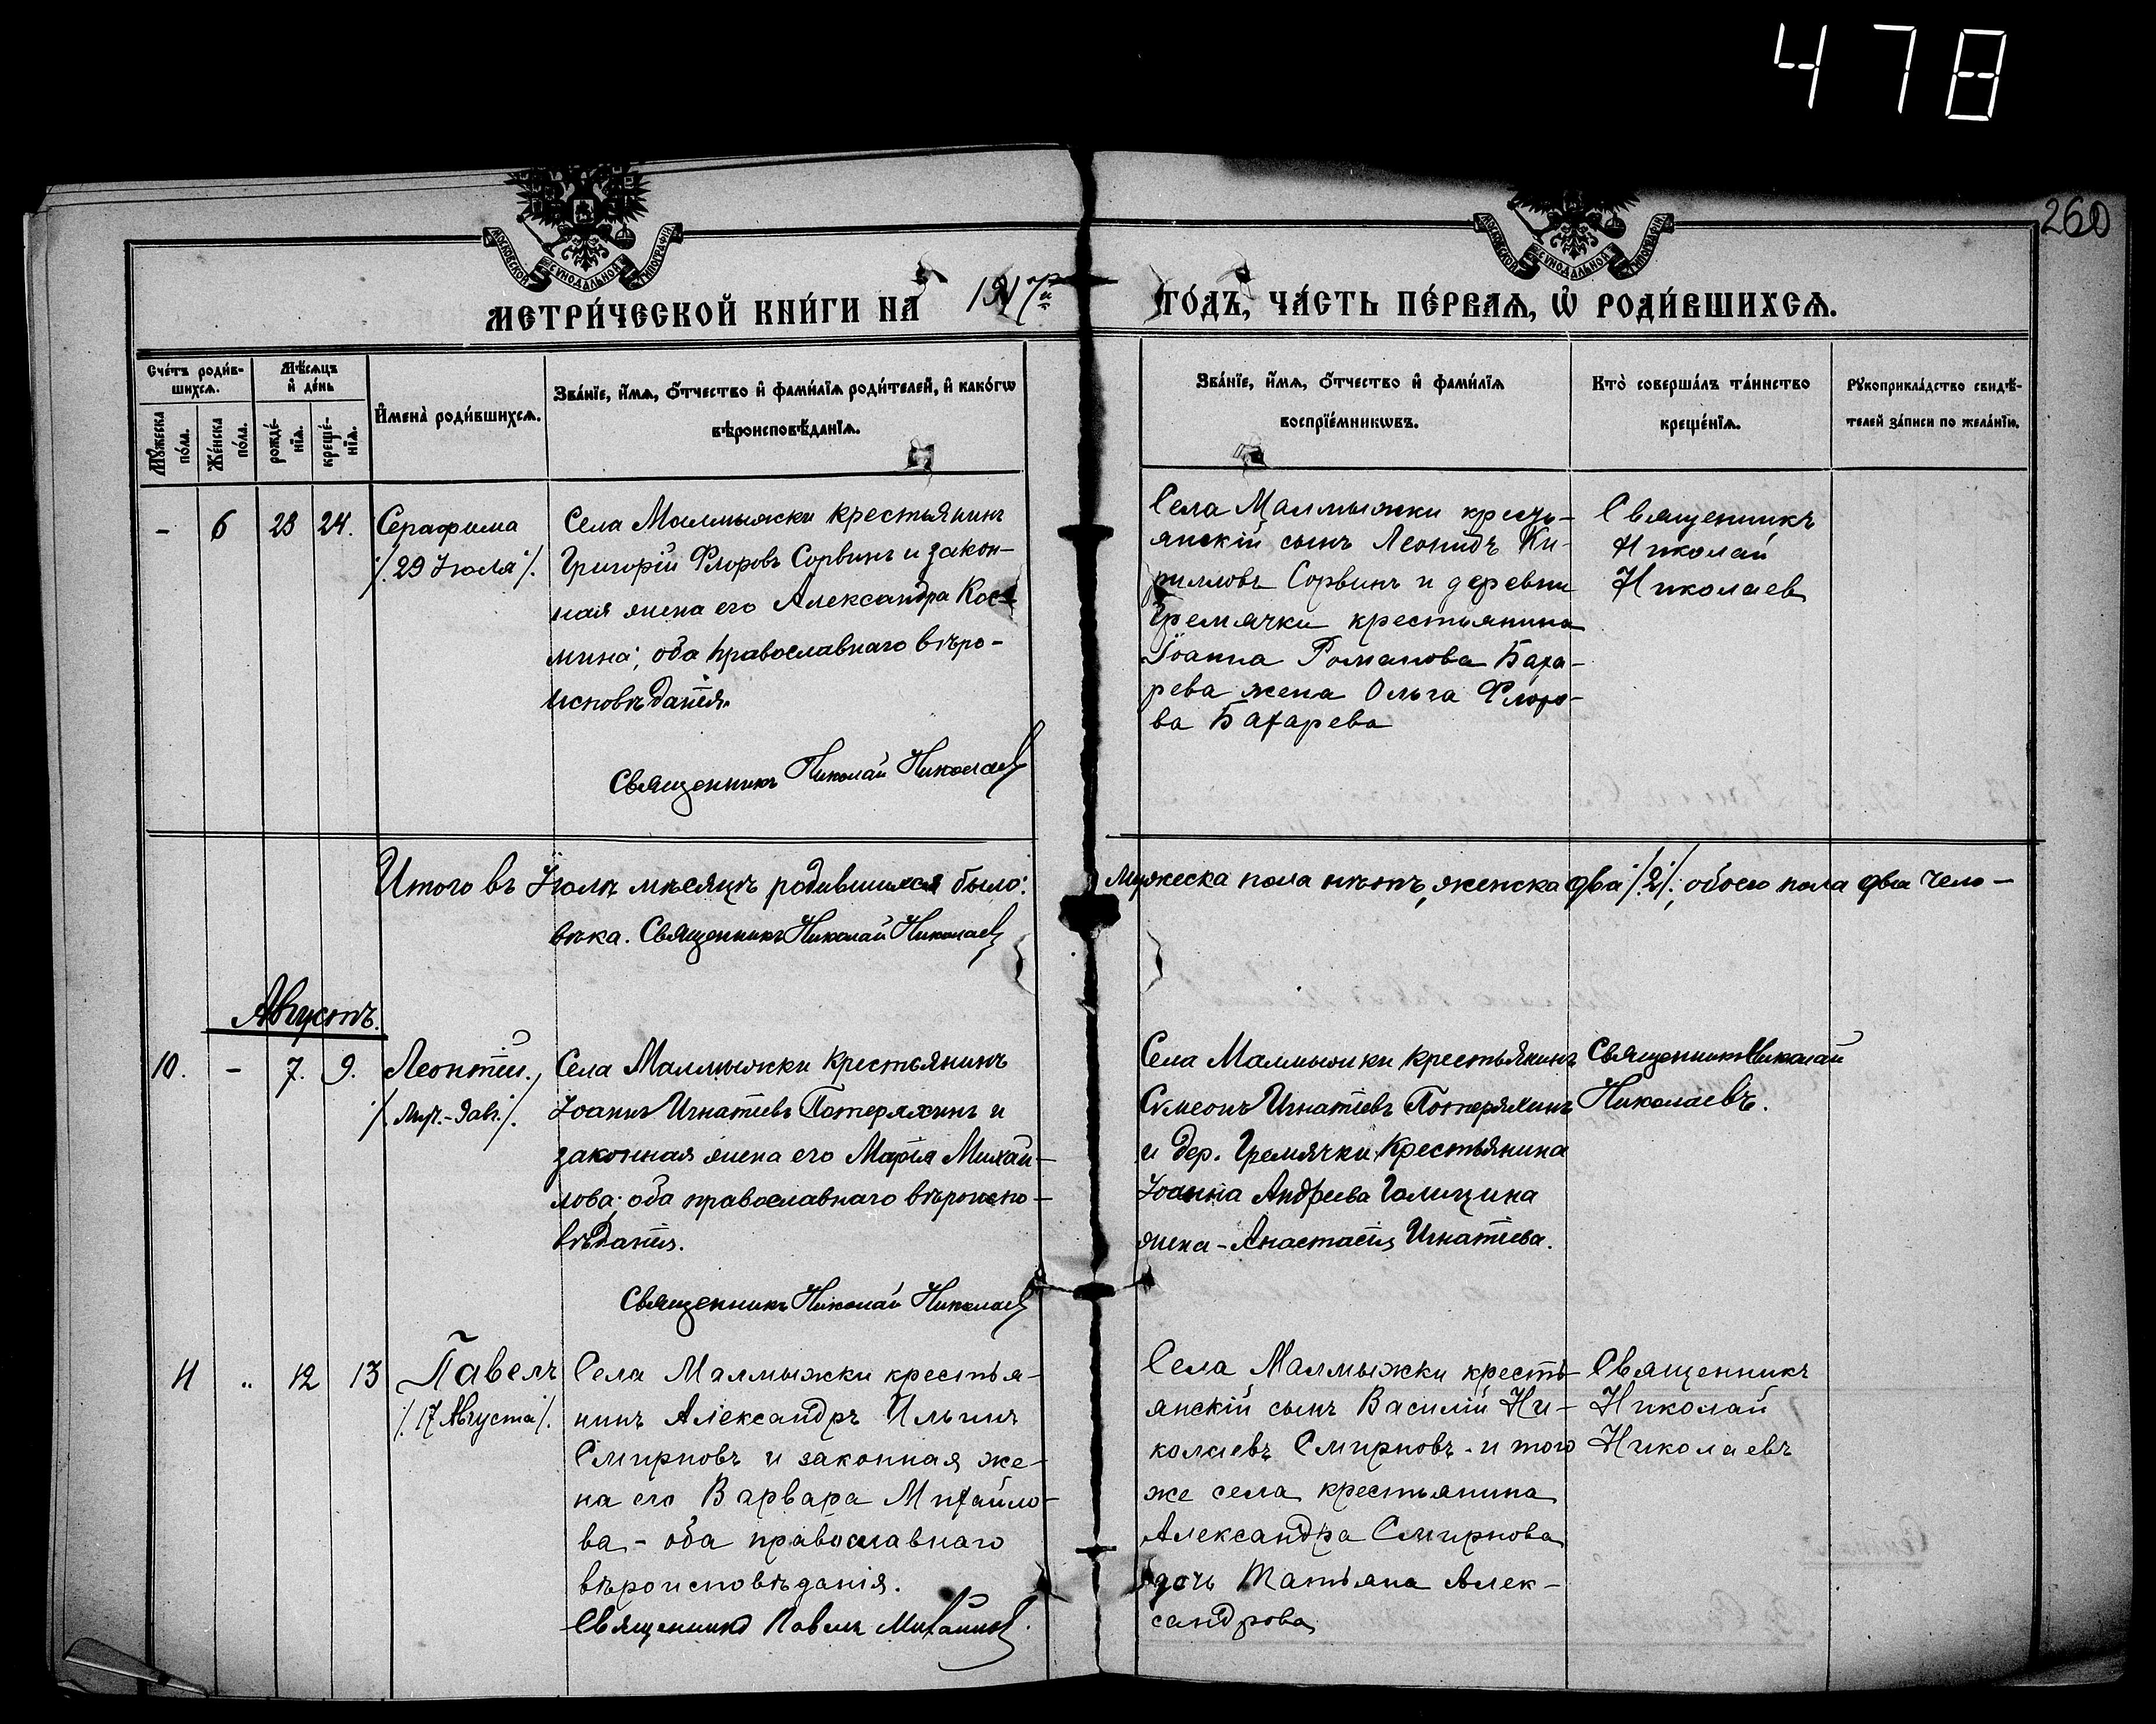 478
260
МОСКОВСКОЙ СѴНОДАЛЬНОЙ ТИПОГРАФІИ
МОСКОВСКОЙ СѴНОДАЛЬНОЙ ТИПОГРАФІИ
МЕТРИ́ЧЕСКОЙ КНИ́ГИ НА 1917й ГО́ДЪ, ЧА́СТЬ ПЕ́РВАѦ, Ѡ РОДИ́ВШИХСѦ.
Сче́тъ роди́в-
шихсѧ.
Мꙋ́жеска
по́ла.
Же́нска
по́ла.
Мѣ́сѧцъ
и де́нь
рожде́-
нїѧ.
креще́-
нїѧ.
И҆мена̀ роди́вшихсѧ.
Зва́нїе, и҆́мѧ, ѻ҆́тчество и҆ фами́лїѧ роди́телей, и҆ како́гѡ
вѣроисповѣ́данїѧ.
Зва́нїе, и҆́мѧ, ѻ҆́тчество и҆ фами́лїѧ
воспрїе́мникѡвъ.
Кто̀ соверша́лъ та́инство
креще́нїѧ.
Рꙋкоприкла́дство свидѣ́-
телей за́писи по жела́нїю.
- 6 23 24. Серафима
/. 29 Іюля /.
Села Малмыжки крестьянинъ
Григорій Флоровъ Сорвинъ и закон-
ная жена его Александра Кос-
мина; оба православнаго вѣро-
исповѣданія.
Священникъ Николай Николаев
Села Малмыжки кресть-
янскій сынъ Леонидъ Ки-
рилловъ Сорвинъ и деревни
Гремячки крестьянина
Іоанна Романова Баха-
рева жена Ольга Флоро-
ва Бахарева
Священникъ
Николай
Николаев
Итого въ Іюлѣ мѣсяцѣ родившихся было: мужеска пола нѣтъ, женска два /.2/., обоего пола два чело-
вѣка. Священникъ Николай Николаев
Августъ.
10. - 7. 9. Леонтій.
Села Малмыжки крестьянинъ
Іоаннъ Игнатіевъ Потеряхинъ и
законная жена его Марія Михай-
лова; оба православнаго вѣроиспо-
вѣданія.
Священникъ Николай Николаев
Села Малмыжки крестьянинъ
Сѵмеонъ Игнатіевъ Потеряхинъ
и дер. Гремячки крестьянина
Іоанна Андреева Голицина
жена - Анастасія Игнатіева.
Священникъ Николай
Николаевъ.
11 " 12 13 Павелъ
/. 17 Августа /.
Села Малмыжки крестья-
нинъ Александръ Ильинъ
Смирновъ и законная же-
на его Варвара Михайло-
ва - оба православнаго
вѣроисповѣданія.
Священникъ Павелъ Михайлов
Села Малмыжки кресть-
янскій сынъ Василій Ни-
колаевъ Смирновъ и того
же села крестьянина
Александра Смирнова
дочь Татьяна Алек-
сандрова
Священникъ
Николай
Николаевъ